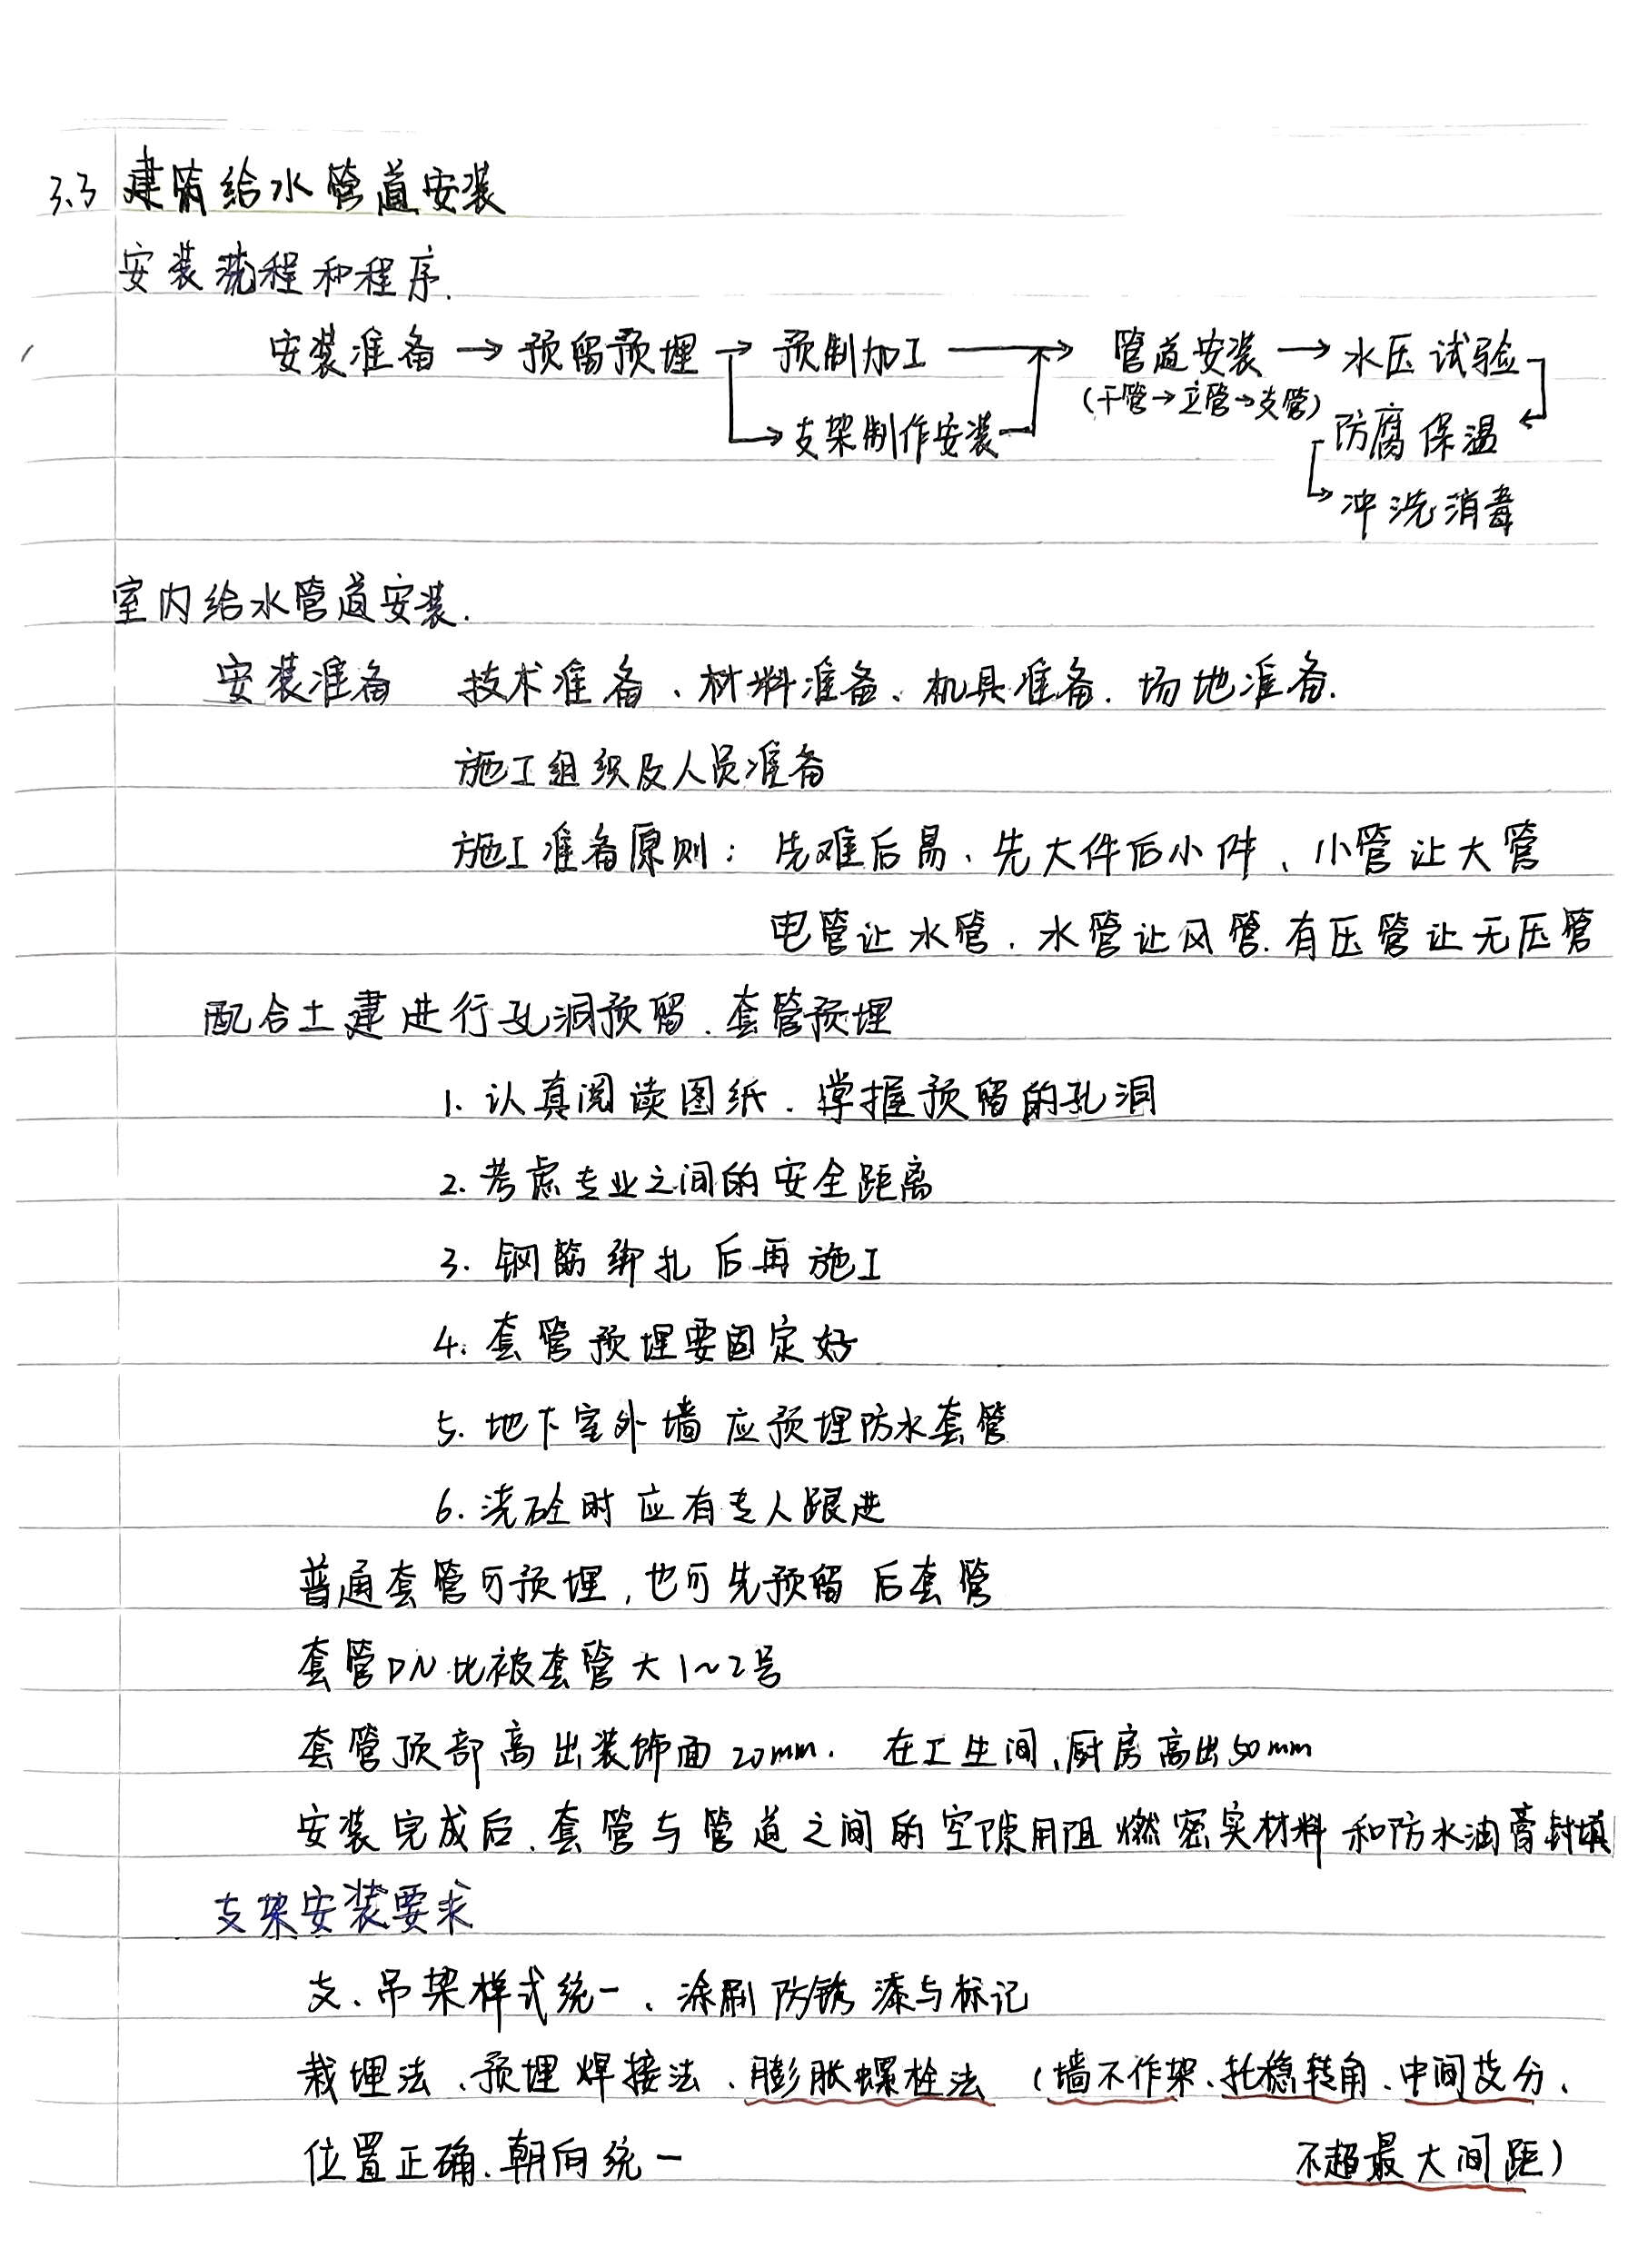 3.3 建筑给水管道安装
安装流程和程序.
安装准备 → 预留预埋 → 预制加工 → 管道安装 → 水压试验
(干管→立管→支管)
→支架制作安装 防腐保温
→冲洗消毒
室内给水管道安装.
安装准备 技术准备、材料准备、机具准备. 场地准备.
施工组织及人员准备
施工准备原则: 先难后易、先大件后小件、小管让大管
电管让水管. 水管让风管. 有压管让无压管
配合土建进行孔洞预留. 套管预埋
1. 认真阅读图纸. 掌握预留的孔洞
2. 考虑专业之间的安全距离
3. 钢筋绑扎后再施工
4. 套管预埋要固定好
5. 地下室外墙应预埋防水套管
6. 浇砼时应有专人跟进
普通套管可预埋, 也可先预留后套管
套管DN比被套管大1~2号
套管顶部高出装饰面20mm. 在卫生间、厨房高出50mm
安装完成后、套管与管道之间的空隙用阻燃密实材料和防水油膏封填
支架安装要求
支、吊架样式统一、涂刷防锈漆与标记
栽埋法、预埋焊接法、膨胀螺栓法 (墙不作架、托稳转角、中间等分、
位置正确、朝向统一 不超最大间距)